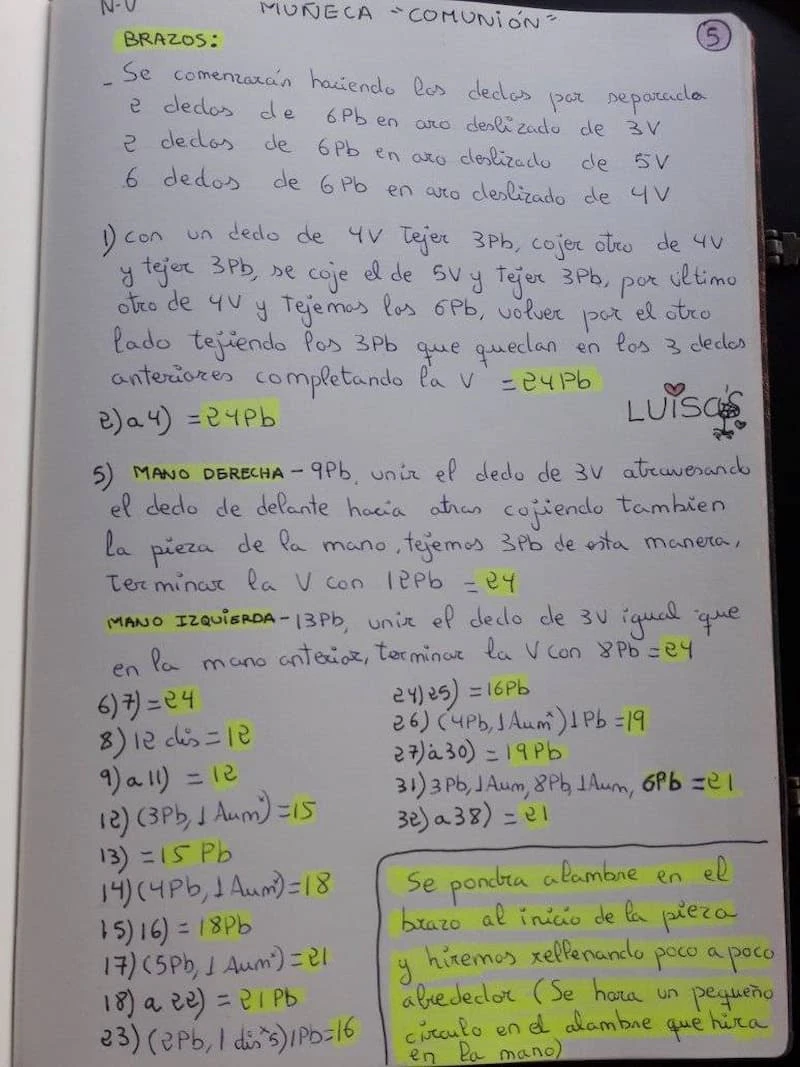 N-V
MUÑECA "COMUNIÓN"
5
BRAZOS:
- Se comenzarán haciendo los dedos por separado
2 dedos de 6Pb en aro deslizado de 3V
2 dedos de 6Pb en aro deslizado de 5V
6 dedos de 6Pb en aro deslizado de 4V
1) con un dedo de 4V tejer 3Pb, cojer otro de 4V
y tejer 3Pb, se coje el de 5V y tejer 3Pb, por último
otro de 4V y tejemos los 6Pb, volver por el otro
lado tejiendo los 3Pb que quedan en los 3 dedos
anteriores completando la V = 24Pb
2) a 4) = 24Pb
LUISA'S
5) MANO DERECHA - 9Pb, unir el dedo de 3V atravesando
el dedo de delante hacia atras cojiendo tambien
la pieza de la mano, tejemos 3Pb de esta manera,
terminar la V con 12Pb = 24
MANO IZQUIERDA - 13Pb, unir el dedo de 3V igual que
en la mano anterior, terminar la V con 8Pb = 24
6) 7) = 24
8) 12 dis = 12
9) a 11) = 12
12) (3Pb, 1 Aum*) = 15
13) = 15 Pb
14) (4Pb, 1 Aum*) = 18
15) 16) = 18Pb
17) (5Pb, 1 Aum*) = 21
18) a 22) = 21Pb
23) (2Pb, 1 dis*5) 1Pb = 16
24) 25) = 16Pb
26) (4Pb, 1 Aum*) 1Pb = 19
27) a 30) = 19Pb
31) 3Pb, 1 Aum, 8Pb, 1 Aum, 6Pb = 21
32) a 38) = 21
Se pondra alambre en el
brazo al inicio de la pieza
y hiremos rellenando poco a poco
alrededor (Se hara un pequeño
círculo en el alambre que hira
en la mano)